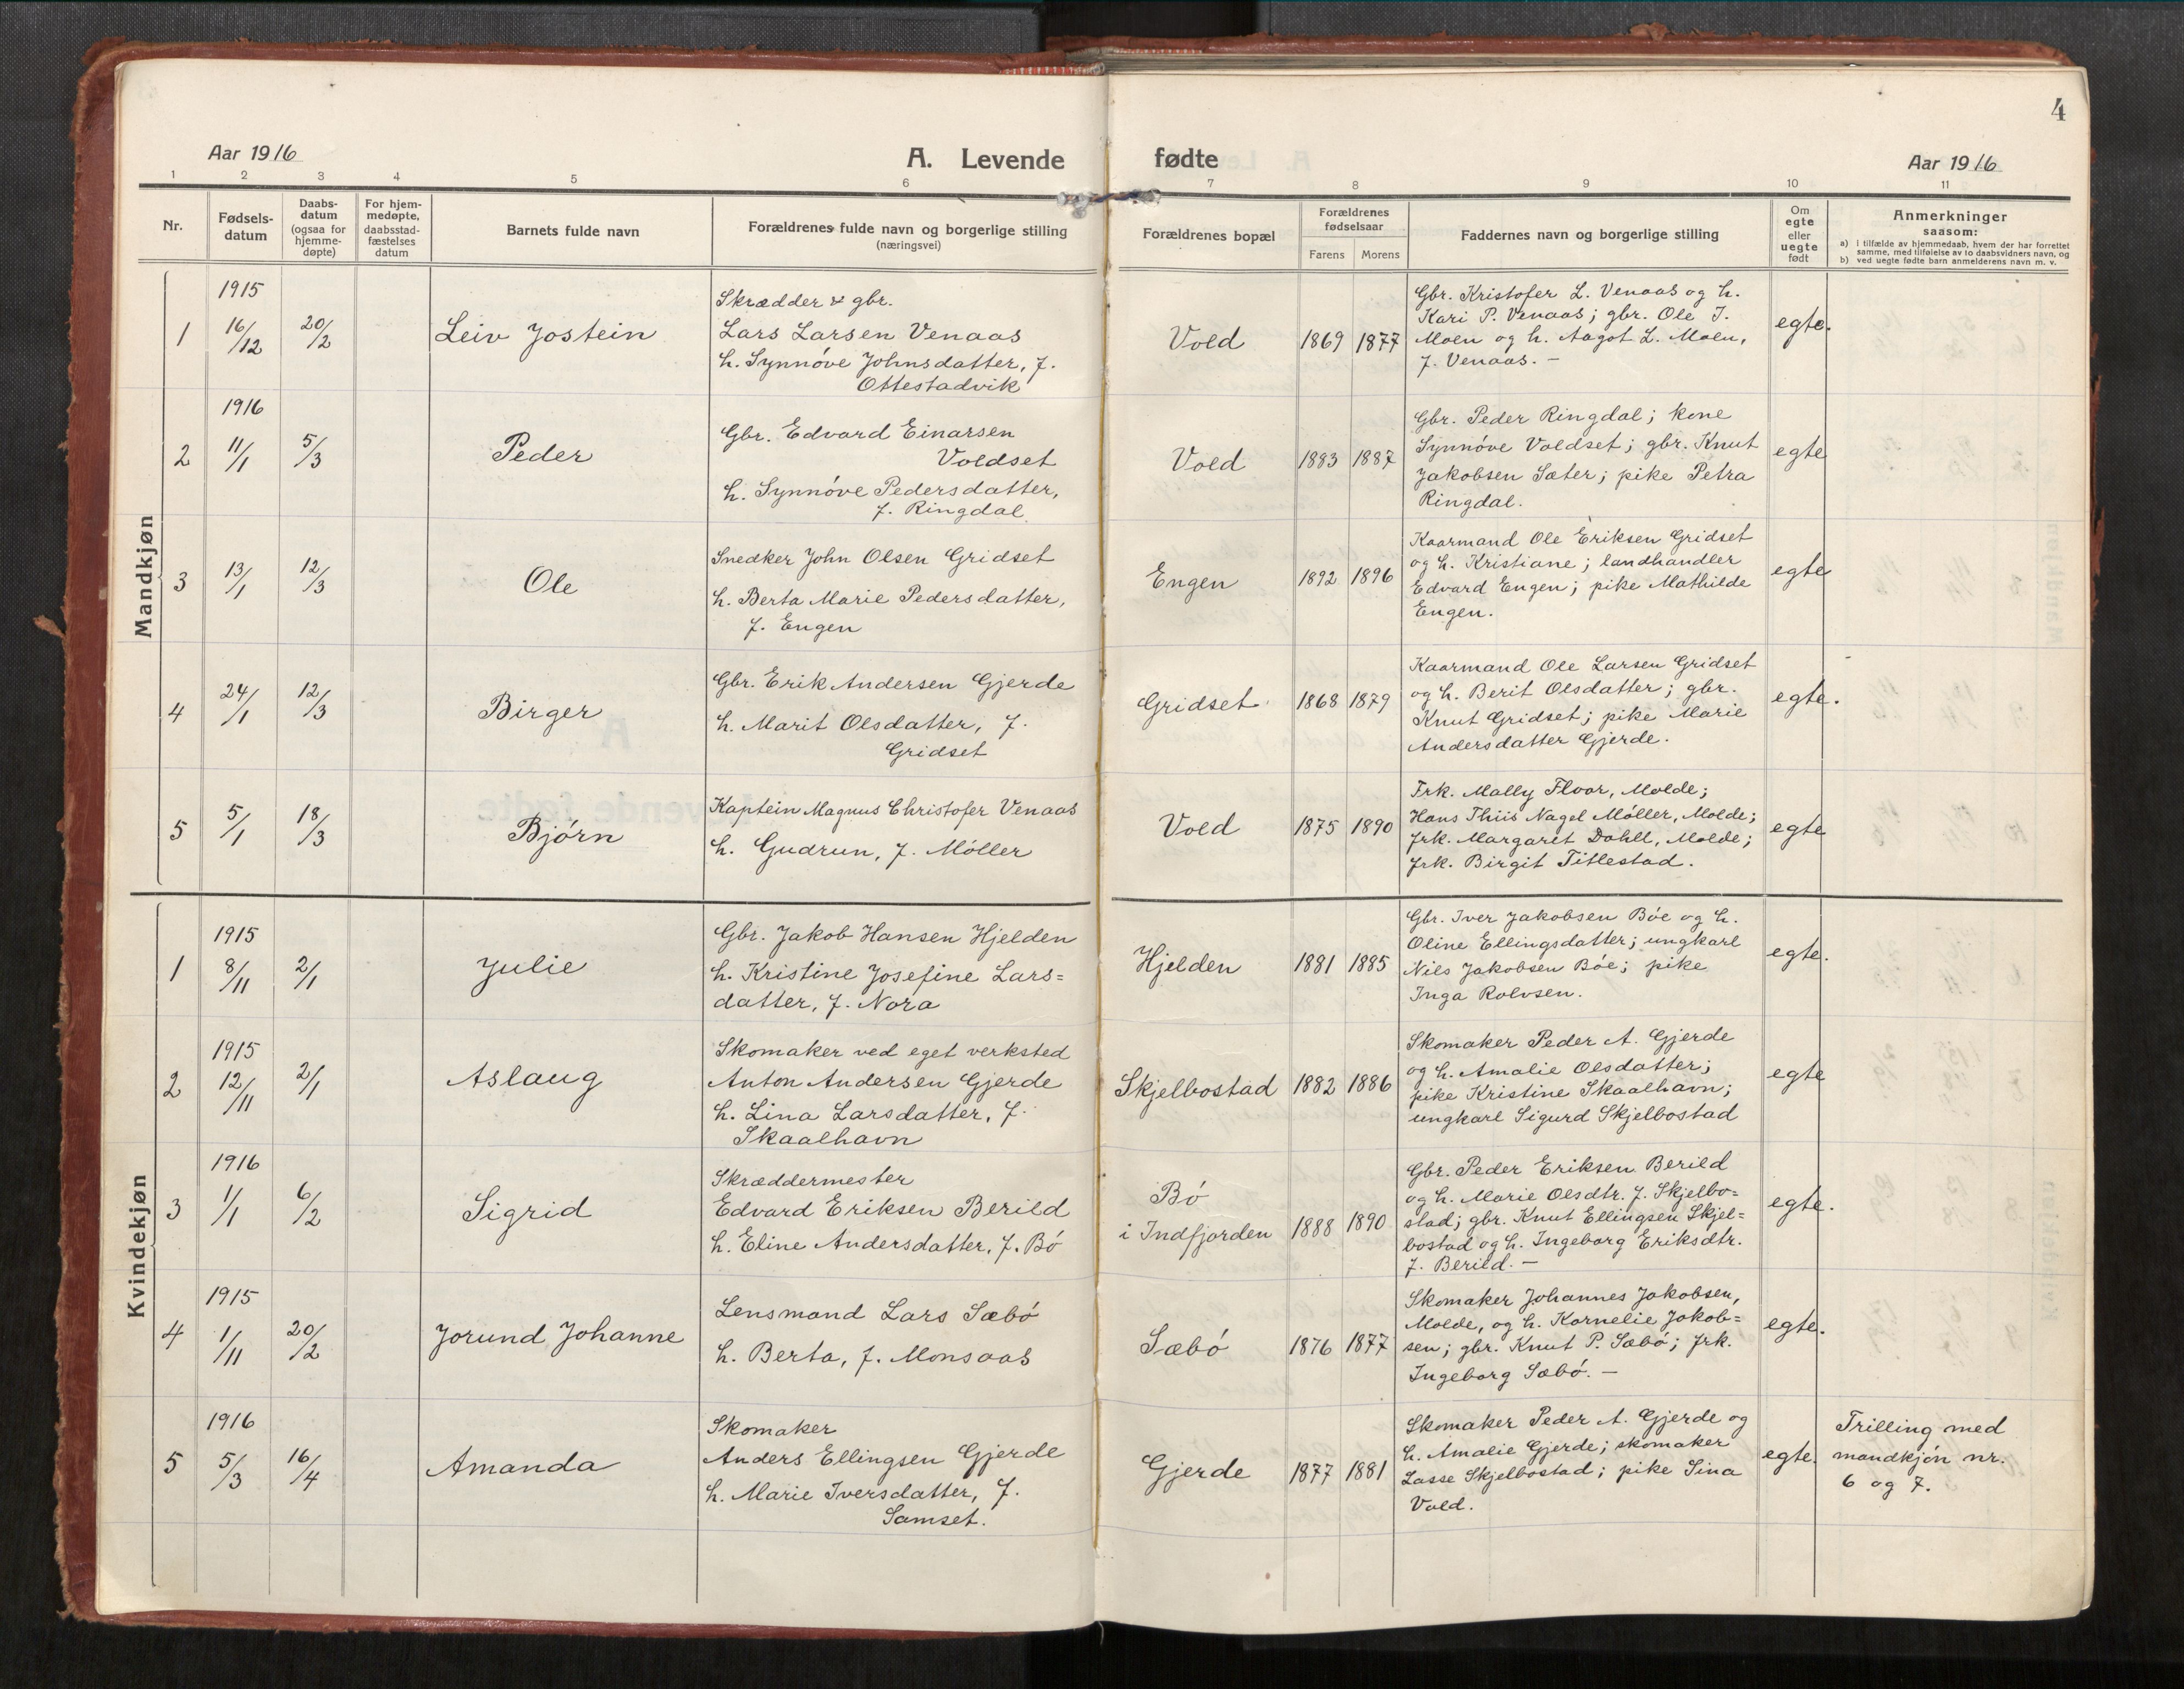 4
Aar 1916
A. Levende fødte
Aar 1916
1 2 3 4 5 6 7 8 9 10 11
Nr.
Fødsels-
datum
Daabs-
datum
(ogsaa for
hjemme-
døpte)
For hjem-
medøpte,
daabsstad-
fæstelses
datum
Barnets fulde navn
Forældrenes fulde navn og borgerlige stilling
(næringsvei)
Forældrenes bopæl
Forældrenes
fødselsaar
Farens Morens
Faddernes navn og borgerlige stilling
Om
egte
eller
uegte
født
Anmerkninger
saasom:
a) i tilfælde av hjemmedaab, hvem der har forrettet
samme, med tilføielse av to daabsvidners navn, og
b) ved uegte fødte barn anmelderens navn m. v.
Mandkjøn
1
1915
16/12
20/2
Leiv Jostein
Skrædder & gbr.
Lars Larsen Venaas
h. Synnöve Johnsdatter, f.
Ottestadvik
Vold
1869 1877
Gbr. Kristofer L. Venaas og h.
Kari P. Venaas; gbr. Ole J.
Moen og h. Aagot L. Moen,
f. Venaas. —
egte.
2
1916
11/1
5/3
Peder
Gbr. Edvard Einarsen
Voldset
h. Synnöve Pedersdatter,
f. Ringdal
Vold
1883 1887
Gbr. Peder Ringdal; kone
Synnöve Voldset; gbr. Knut
Jakobsen Sæter; pike Petra
Ringdal.
egte
3
13/1
12/3
Ole
Snedker John Olsen Gridset
h. Berta Marie Pedersdatter,
f. Engen
Engen
1892 1896
Kaarmand Ole Eriksen Gridset
og h. Kristiane; landhandler
Edvard Engen; pike Mathilde
Engen.
egte
4
24/1
12/3
Birger
Gbr. Erik Andersen Gjerde
h. Marit Olsdatter, f.
Gridset
Gridset
1868 1879
Kaarmand Ole Larsen Gridset
og h. Berit Olsdatter; gbr.
Knut Gridset; pike Marie
Andersdatter Gjerde.
egte.
5
5/1
18/3
Björn
Kaptein Magnus Christofer Venaas
h. Gudrun, f. Möller
Vold
1875 1890
Frk. Mally Floor, Molde;
Hans Thiis Nagel Möller, Molde;
frk. Margaret Dahll, Molde;
frk. Birgit Titlestad.
egte
Kvindekjøn
1
1915
8/11
2/1
Julie
Gbr. Jakob Hansen Hjelden
h. Kristine Josefine Lars=
datter, f. Nora
Hjelden
1881 1885
Gbr. Iver Jakobsen Böe og h.
Oline Ellingsdatter; ungkarl
Nils Jakobsen Böe; pike
Inga Rolvsen.
egte.
2
1915
12/11
2/1
Aslaug
Skomaker ved eget verksted
Anton Andersen Gjerde
h. Lina Larsdatter, f.
Skaalhavn
Skjelbostad
1882 1886
Skomaker Peder A. Gjerde
og h. Amalie Olsdatter;
pike Kristine Skaalhavn;
ungkarl Sigurd Skjelbostad
egte
3
1916
1/1
6/2
Sigrid
Skræddermester
Edvard Eriksen Berild
h. Eline Andersdatter, f. Bö
Bö
i Indfjorden
1888 1890
Gbr. Peder Eriksen Berild
og h. Marie Olsdtr. f. Skjelbo=
stad; gbr. Knut Ellingsen Skjel=
bostad og h. Ingeborg Eriksdtr.
f. Berild. —
egte.
4
1915
1/11
20/2
Jorund Johanne
Lensmand Lars Sæbö
h. Berta, f. Monsaas
Sæbö
1876 1877
Skomaker Johannes Jakobsen,
Molde, og h. Kornelie Jakob=
sen; gbr. Knut P. Sæbö; frk.
Ingeborg Sæbö. —
egte.
5
1916
5/3
16/4
Amanda
Skomaker
Anders Ellingsen Gjerde
h. Marie Iversdatter, f.
Samset.
Gjerde
1877 1881
Skomaker Peder A. Gjerde og
h. Amalie Gjerde; skomaker
Lasse Skjelbostad; pike Sina
Vold.
egte.
Trilling med
mandkjön nr.
6 og 7.